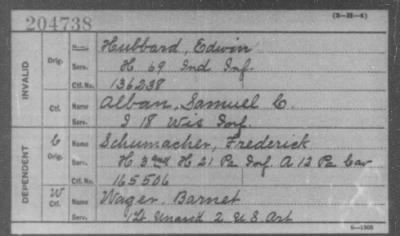 204738
(3-21-4)
INVALID
Orig. Name Hubbard, Edwin
Serv. H 69 Ind Inf.
Ctf. No. 136238
Ctf. Name Alban, Samuel C.
Serv. I 18 Wis Inf.
DEPENDENT
C Orig. Name Schumacher, Frederick
Serv. H 3 H 21 Pa Inf. A 12 Pa Cav
Ctf. No. 165506
W Ctf. Name Wager, Barnet
Serv. 1 Lt Unassd 2 U S Art